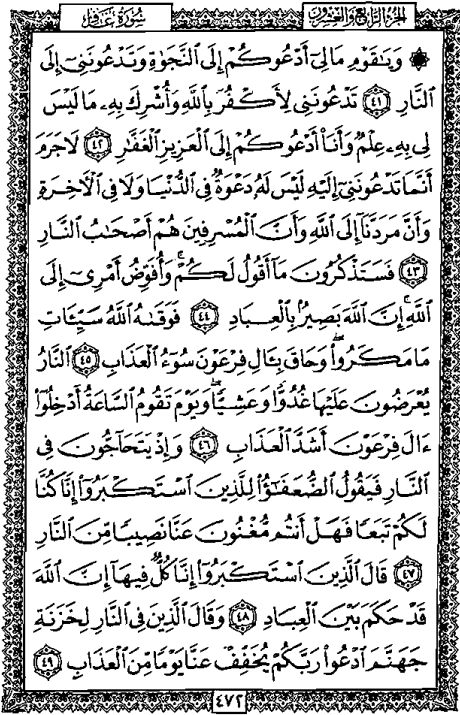 الجزء الرابع والعشرون
سُورَةُ غَافِر
۞ وَيَٰقَوْمِ مَا لِىٓ أَدْعُوكُمْ إِلَى ٱلنَّجَوٰةِ وَتَدْعُونَنِىٓ إِلَى
ٱلنَّارِ ٤١ تَدْعُونَنِى لِأَكْفُرَ بِٱللَّهِ وَأُشْرِكَ بِهِۦ مَا لَيْسَ
لِى بِهِۦ عِلْمٌ وَأَنَا۠ أَدْعُوكُمْ إِلَى ٱلْعَزِيزِ ٱلْغَفَّٰرِ ٤٢ لَا جَرَمَ
أَنَّمَا تَدْعُونَنِىٓ إِلَيْهِ لَيْسَ لَهُۥ دَعْوَةٌ فِى ٱلدُّنْيَا وَلَا فِى ٱلْءَاخِرَةِ
وَأَنَّ مَرَدَّنَآ إِلَى ٱللَّهِ وَأَنَّ ٱلْمُسْرِفِينَ هُمْ أَصْحَٰبُ ٱلنَّارِ
٤٣ فَسَتَذْكُرُونَ مَآ أَقُولُ لَكُمْ ۚ وَأُفَوِّضُ أَمْرِىٓ إِلَى
ٱللَّهِ ۚ إِنَّ ٱللَّهَ بَصِيرٌۢ بِٱلْعِبَادِ ٤٤ فَوَقَىٰهُ ٱللَّهُ سَيِّـَٔاتِ
مَا مَكَرُوا۟ ۖ وَحَاقَ بِـَٔالِ فِرْعَوْنَ سُوٓءُ ٱلْعَذَابِ ٤٥ ٱلنَّارُ
يُعْرَضُونَ عَلَيْهَا غُدُوًّا وَعَشِيًّا ۖ وَيَوْمَ تَقُومُ ٱلسَّاعَةُ أَدْخِلُوٓا۟
ءَالَ فِرْعَوْنَ أَشَدَّ ٱلْعَذَابِ ٤٦ وَإِذْ يَتَحَآجُّونَ فِى
ٱلنَّارِ فَيَقُولُ ٱلضُّعَفَٰٓؤُا۟ لِلَّذِينَ ٱسْتَكْبَرُوٓا۟ إِنَّا كُنَّا
لَكُمْ تَبَعًا فَهَلْ أَنتُم مُّغْنُونَ عَنَّا نَصِيبًا مِّنَ ٱلنَّارِ
٤٧ قَالَ ٱلَّذِينَ ٱسْتَكْبَرُوٓا۟ إِنَّا كُلٌّ فِيهَآ إِنَّ ٱللَّهَ
قَدْ حَكَمَ بَيْنَ ٱلْعِبَادِ ٤٨ وَقَالَ ٱلَّذِينَ فِى ٱلنَّارِ لِخَزَنَةِ
جَهَنَّمَ ٱدْعُوا۟ رَبَّكُمْ يُخَفِّفْ عَنَّا يَوْمًا مِّنَ ٱلْعَذَابِ ٤٩
٤٧٢